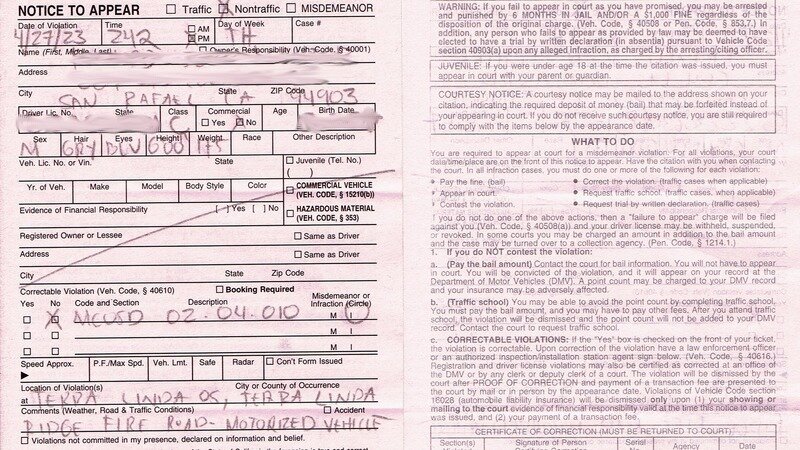 NOTICE TO APPEAR ☐ Traffic ☒ Nontraffic ☐ MISDEMEANOR
Date of Violation Time Day of Week Case #
4/27/23 242 ☐ AM ☒ PM TH
Name (First, Middle, Last) ☐ Owner's Responsibility (Veh. Code, § 40001)
Address
City State ZIP Code
SAN RAFAEL CA 94903
Driver Lic. No. State Class Commercial Age Birth Date
C ☐ Yes ☒ No
Sex Hair Eyes Height Weight Race Other Description
M GRY
Veh. Lic. No. or Vin. State ☐ Juvenile (Tel. No.)
( )
Yr. of Veh. Make Model Body Style Color
☐ COMMERCIAL VEHICLE
(VEH. CODE, § 15210(b))
Evidence of Financial Responsibility [ ] Yes [ ] No
☐ HAZARDOUS MATERIAL
(VEH. CODE, § 353)
Registered Owner or Lessee ☐ Same as Driver
Address ☐ Same as Driver
City State Zip Code
Correctable Violation (Veh. Code, § 40610) ☐ Booking Required
Misdemeanor or
Infraction (Circle)
Yes No Code and Section Description
MCOSD 02.04.010 M I
M I
M I
Speed Approx. P.F./Max Spd. Veh. Lmt. Safe Radar ☐ Con't Form Issued
Location of Violation(s) City or County of Occurrence
at TERRA LINDA OS, TERRA LINDA
Comments (Weather, Road & Traffic Conditions) ☐ Accident
RIDGE FIRE ROAD- MOTORIZED VEHICLE
☐ Violations not committed in my presence, declared on information and belief.
WARNING: If you fail to appear in court as you have promised, you may be arrested
and punished by 6 MONTHS IN JAIL AND/OR A $1,000 FINE regardless of the
disposition of the original charge. (Veh. Code, § 40508 or Pen. Code, § 853.7.) In
addition, any person who fails to appear as provided by law may be deemed to have
elected to have a trial by written declaration (in absentia) pursuant to Vehicle Code
section 40903(a) upon any alleged infraction, as charged by the arresting/citing officer.
JUVENILE: If you were under age 18 at the time the citation was issued, you must
appear in court with your parent or guardian.
COURTESY NOTICE: A courtesy notice may be mailed to the address shown on your
citation, indicating the required deposit of money (bail) that may be forfeited instead of
your appearing in court. If you do not receive such courtesy notice, you are still required
to comply with the items below by the appearance date.
WHAT TO DO
You are required to appear at court for a misdemeanor violation: For all violations, your court
date/time/place are on the front of this notice to appear. Have the citation with you when contacting
the court. In all infraction cases, you must do one or more of the following for each violation:
• Pay the fine. (bail) • Correct the violation. (traffic cases when applicable)
• Appear in court. • Request traffic school. (traffic cases, when applicable)
• Contest the violation. • Request trial by written declaration. (traffic cases)
If you do not do one of the above actions, then a "failure to appear" charge will be filed
against you (Veh. Code, § 40508(a)) and your driver license may be withheld, suspended,
or revoked. In some courts you may be charged an amount in addition to the bail amount
and the case may be turned over to a collection agency. (Pen. Code, § 1214.1.)
1. If you do NOT contest the violation:
a. (Pay the bail amount) Contact the court for bail information. You will not have to appear
in court. You will be convicted of the violation, and it will appear on your record at the
Department of Motor Vehicles (DMV). A point count may be charged to your DMV record
and your insurance may be adversely affected.
b. (Traffic school) You may be able to avoid the point count by completing traffic school.
You must pay the bail amount, and you may have to pay other fees. After you attend traffic
school, the violation will be dismissed and the point count will not be added to your DMV
record. Contact the court to request traffic school.
c. CORRECTABLE VIOLATIONS: If the "Yes" box is checked on the front of your ticket,
the violation is correctable. Upon correction of the violation have a law enforcement officer
or an authorized inspection/installation station agent sign below. (Veh. Code, § 40616.)
Registration and driver license violations may also be certified as corrected at an office of
the DMV or by any clerk or deputy clerk of a court. The violation will be dismissed by the
court after PROOF OF CORRECTION and payment of a transaction fee are presented to
the court by mail or in person by the appearance date. Violations of Vehicle Code section
16028 (automobile liability insurance) will be dismissed only upon (1) your showing or
mailing to the court evidence of financial responsibility valid at the time this notice to appear
was issued, and (2) your payment of a transaction fee.
CERTIFICATE OF CORRECTION (MUST BE RETURNED TO COURT)
Section(s) Signature of Person Serial Agency Date